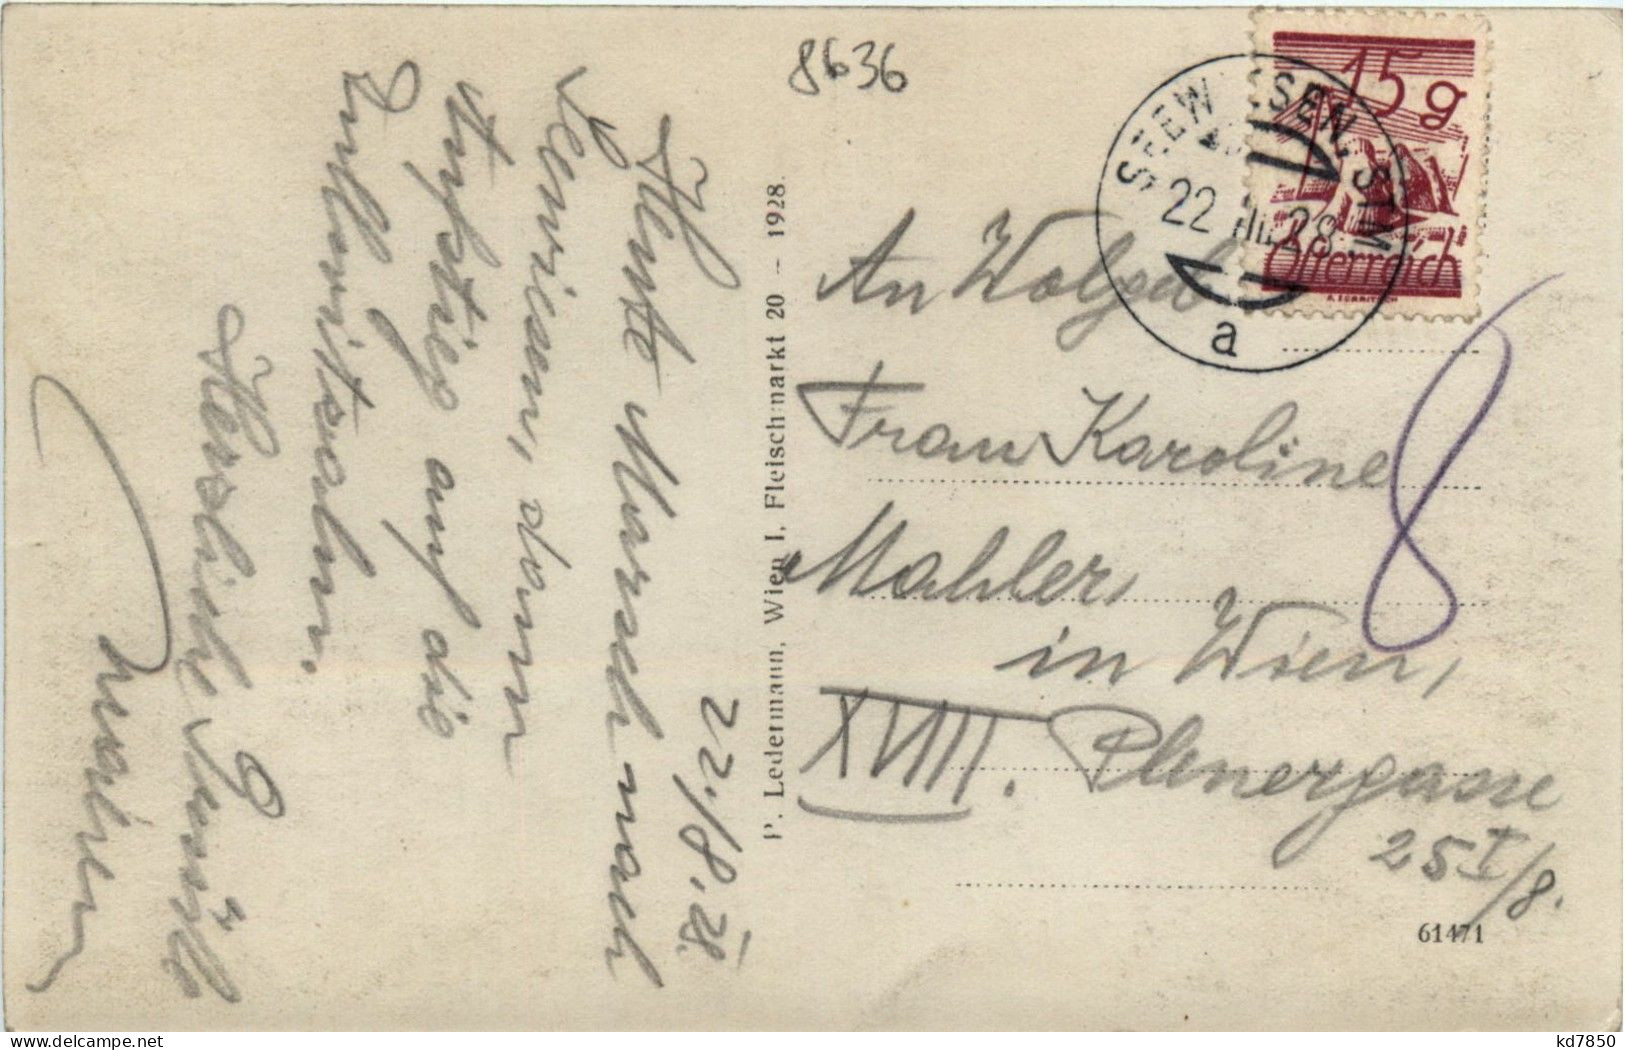 8636
22./8. 28.
Heute Marsch nach
Seewiesen, dann
Aufstieg auf die
Herzliche Grüße
P. Ledermann, Wien I, Fleischmarkt 20 – 1928.
15 g
Österreich
SEEWIESEN, STMK
22. VIII. 28
a
An Wolgeb
Frau Karoline
Mahler
in Wien,
XVIII. Plenergasse
25 I/8.
8
61471
kd7850